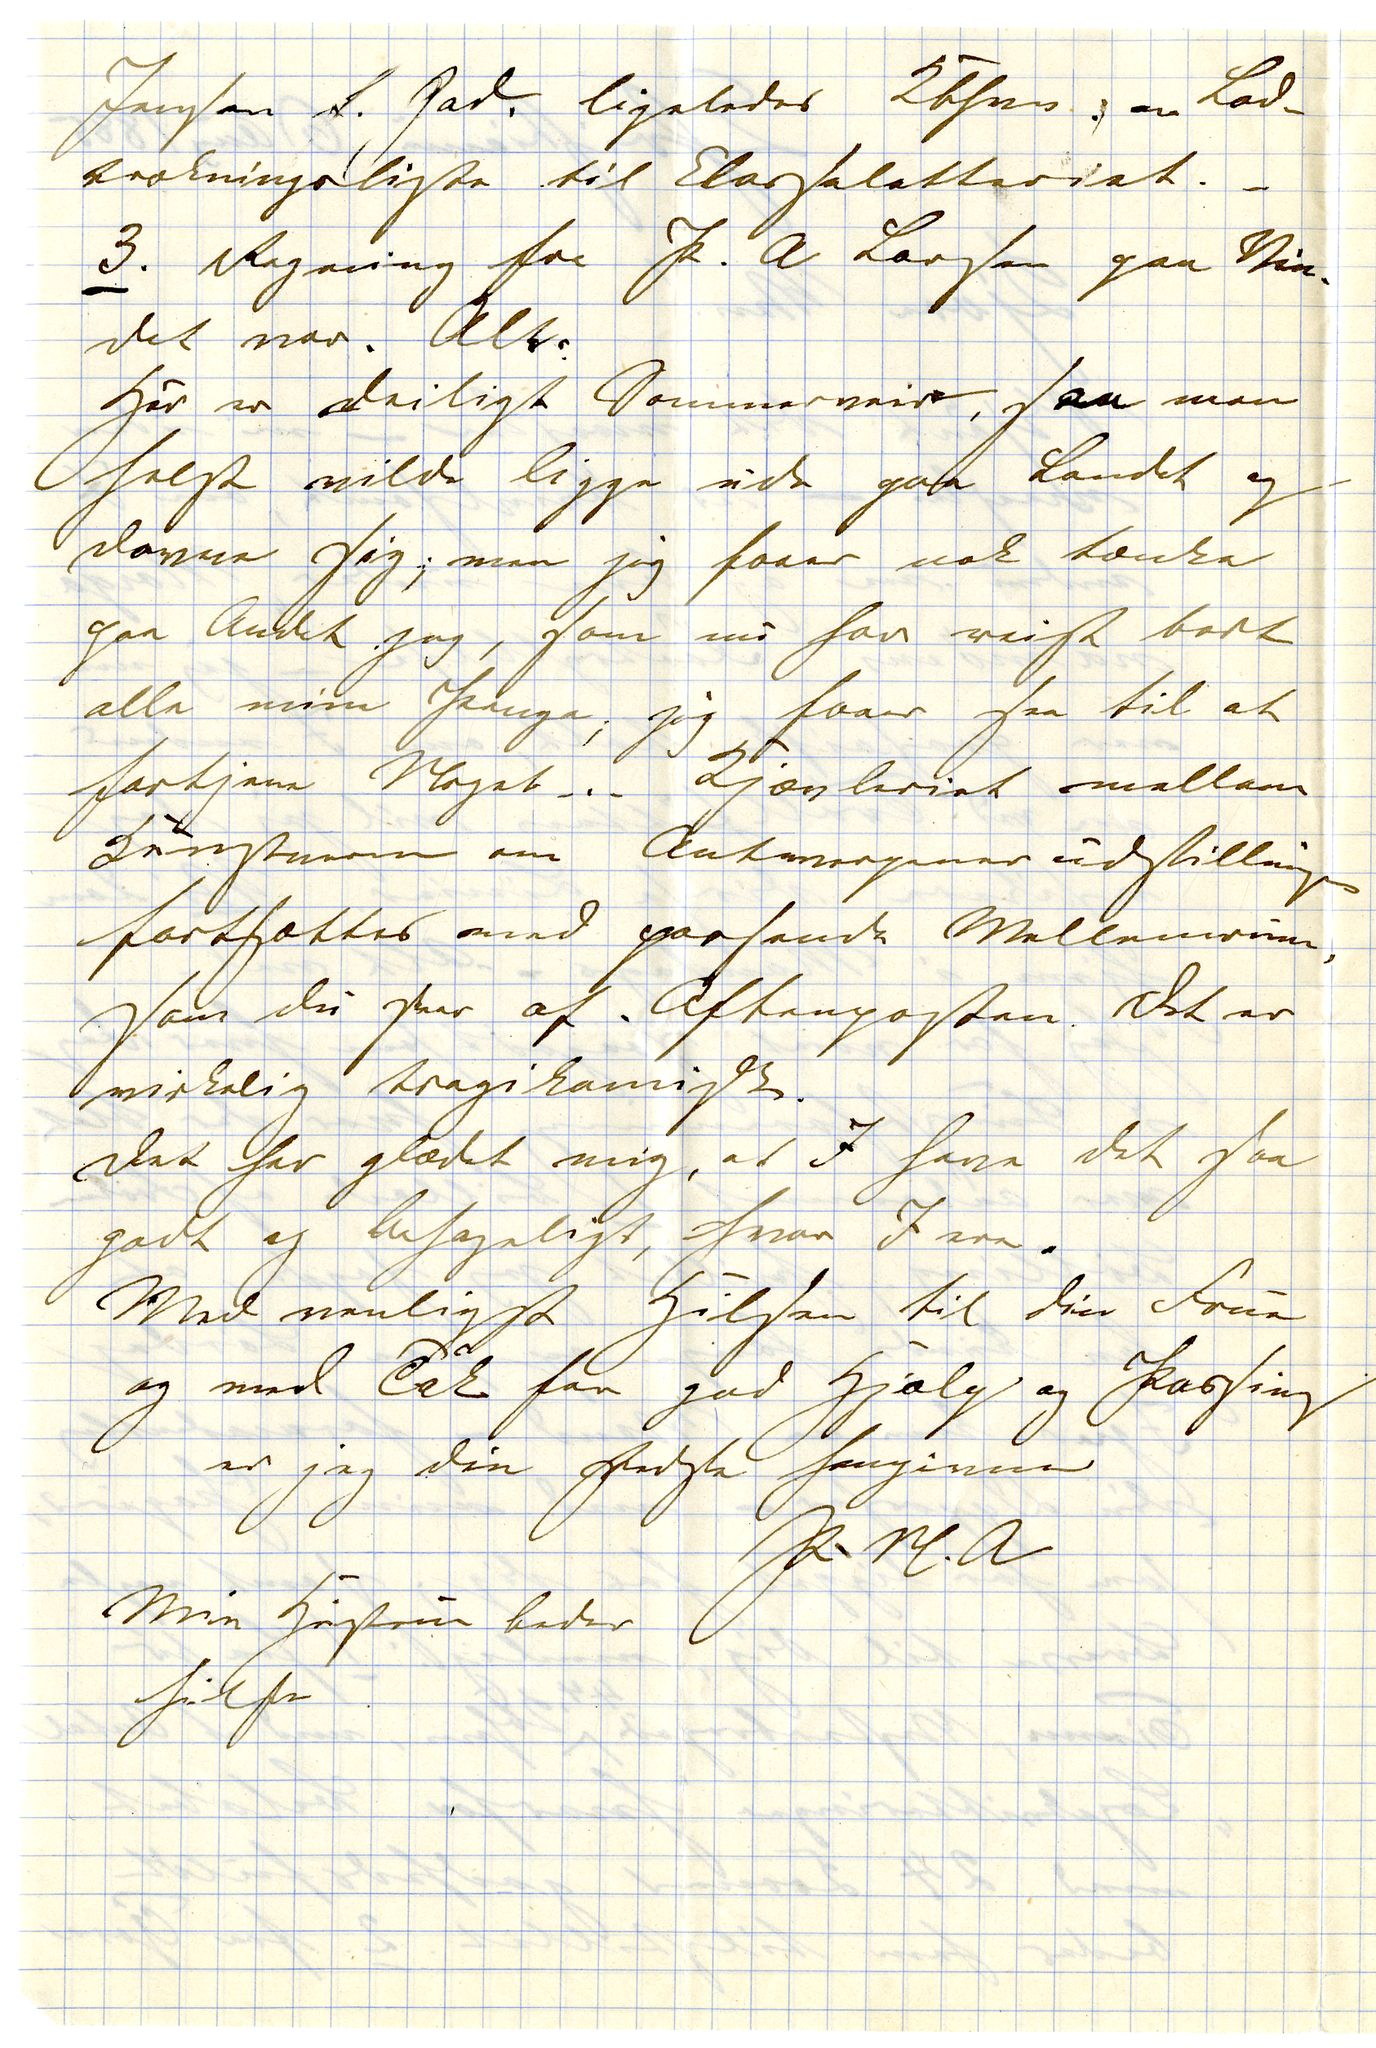 Jensen L. Gad. ligeledes Kbhvn.; en Lod-
trækningsliste til Classelotteriet. -
3. Regning fra P. A Larsen paa Vin.
det var. Alt.
Her er deiligt Sommerveir, saa man
helst vilde ligge ude paa Landet og
dovne sig; men jeg faaer nok tænke
paa Andet jeg, som nu har reist bort
alle mine Penge; jeg faaer see til at
fortjene Noget -.- Kjævleriet mellem
Kunstnerne om Antwerpener udstillingen
fortsættes med passende Mellemrum,
som du seer af Aftenposten. Det er
virkelig tragikomisk.
Det har glædet mig, at I have det saa
godt og behageligt, hvor I ere.
Med venligst Hilsen til din Frue
og med Tak for god Hjælp og Pasning
er jeg din stedse hengivne
P. N. A
Min Hustru beder
hilse